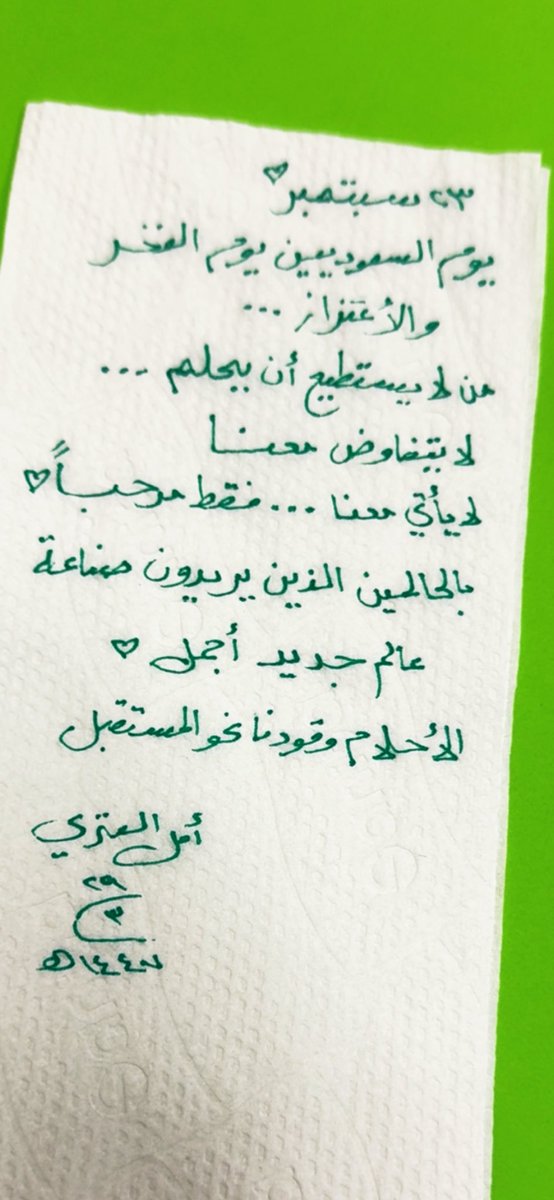 ٢٣ سبتمبر ♡
يوم السعوديين يوم الفخر
والأعتزاز ...
من لا يستطيع أن يحلم ...
لا يتفاوض معنا
لا يأتي معنا ... فقط مرحباً ♡
بالحالمين الذين يريدون صناعة
عالم جديد أجمل ♡
الأحلام وقودنا نحو المستقبل
أمل العنزي
٢٩
٣
١٤٤٧هـ